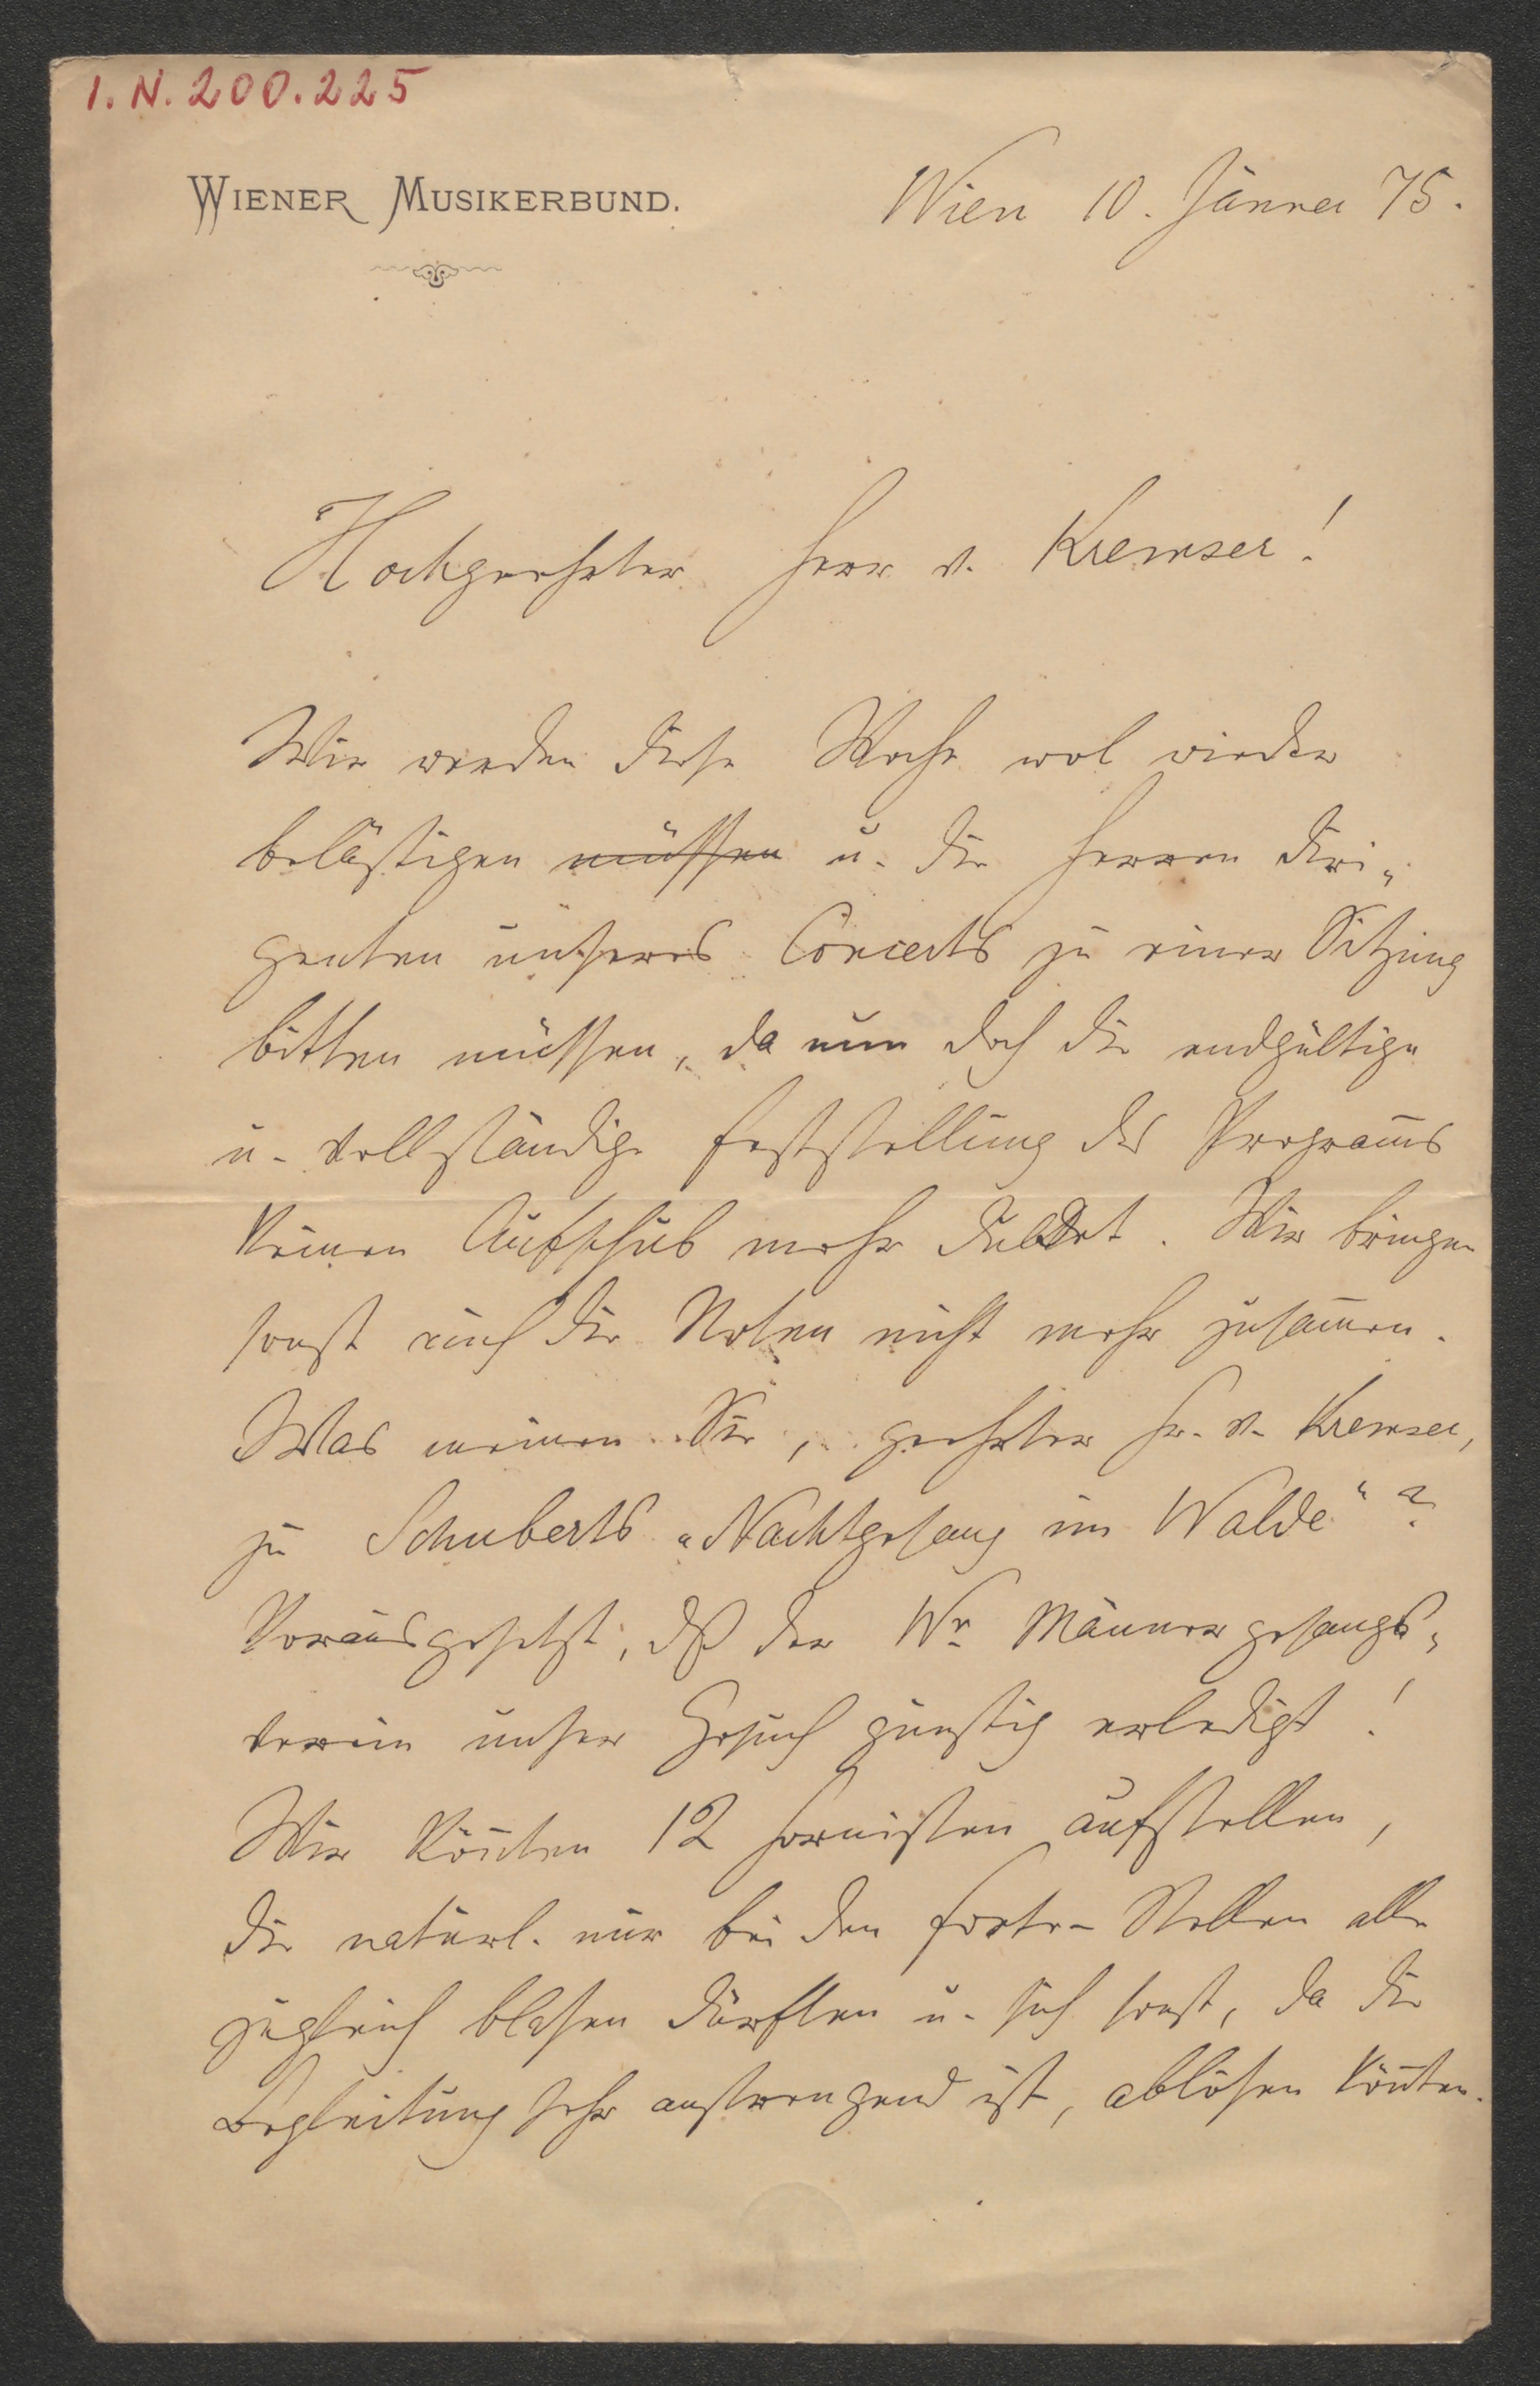 I.N. 200.225
WIENER MUSIKERBUND.
Wien 10. Jänner 75.
Hochgeehrter Herr v. Kremser!
Wir werden diese Woche wol wieder
belästigen müssen u. die Herren Diri„
genten unseres Concerts zu einer Sitzung
bitten müssen, da nun doch die endgültige
u. vollständige Feststellung des Programms
keinen Aufschub mehr duldet. Wir bringen
sonst auch die Noten nicht mehr zusammen.
Was meinen Sie, geehrter Hr. v. Kremser,
zu Schuberts „Nachtgesang im Walde“?
Vorausgesetzt, dß der Wr Männergesangs„
verein unser Gesuch günstig erledigt!
Wir könnten 12 Hornisten aufstellen,
die natürl. nur bei den Forte-Stellen alle
zugleich blasen dürften u. sich sonst, da die
Begleitung sehr anstrengend ist, ablösen könnten.